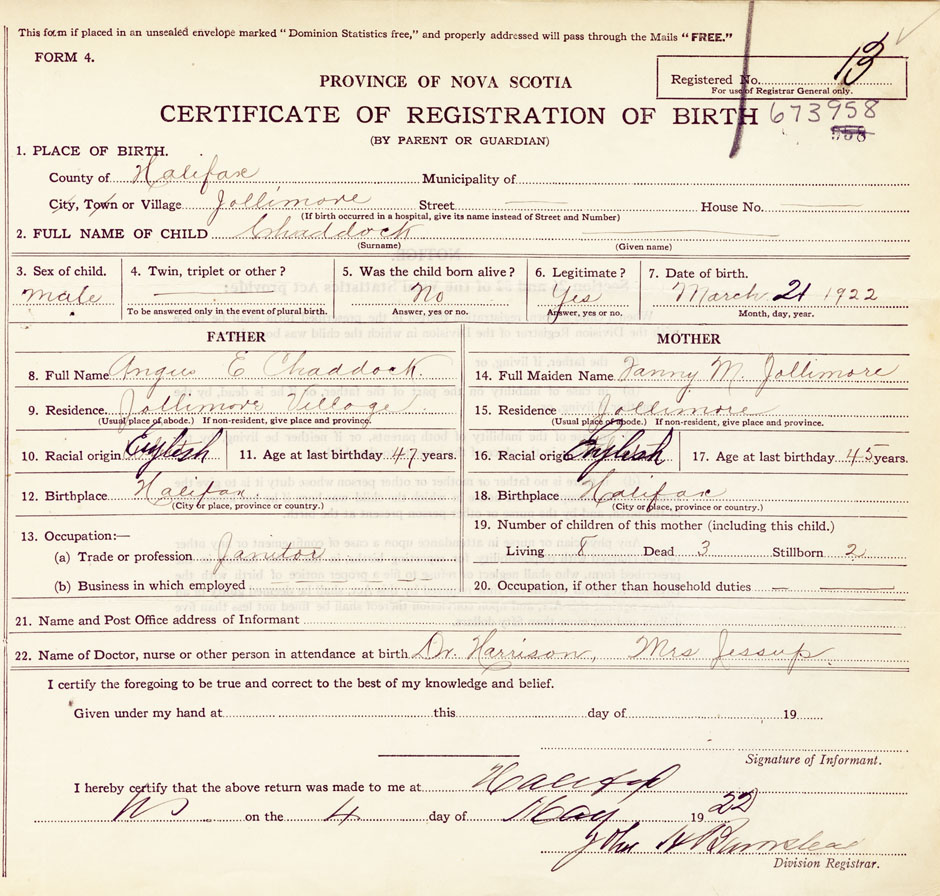 This form if placed in an unsealed envelope marked "Dominion Statistics free," and properly addressed will pass through the Mails "FREE."
FORM 4.
13
Registered No.
For use of Registrar General only.
PROVINCE OF NOVA SCOTIA
CERTIFICATE OF REGISTRATION OF BIRTH 673958
958
(BY PARENT OR GUARDIAN)
1. PLACE OF BIRTH.
County of Halifax Municipality of
City, Town or Village Jollimore Street — House No. —
(If birth occurred in a hospital, give its name instead of Street and Number)
2. FULL NAME OF CHILD Chaddock —
(Surname) (Given name)
3. Sex of child. 4. Twin, triplet or other? 5. Was the child born alive? 6. Legitimate? 7. Date of birth.
male — No Yes March 21 1922
To be answered only in the event of plural birth. Answer, yes or no. Answer, yes or no. Month, day, year.
FATHER MOTHER
8. Full Name Angus E Chaddock. 14. Full Maiden Name Fanny M. Jollimore
9. Residence. Jollimore Village 15. Residence Jollimore
(Usual place of abode.) If non-resident, give place and province. (Usual place of abode.) If non-resident, give place and province.
10. Racial origin English 11. Age at last birthday 47 years. 16. Racial origin English 17. Age at last birthday 45 years.
12. Birthplace Halifax. 18. Birthplace Halifax
(City or place, province or country.) (City or place, province or country.)
13. Occupation:— 19. Number of children of this mother (including this child.)
(a) Trade or profession Janitor Living 8 Dead 3 Stillborn 2
(b) Business in which employed — — — 20. Occupation, if other than household duties — —
21. Name and Post Office address of Informant
22. Name of Doctor, nurse or other person in attendance at birth Dr. Harrison, Mrs Jessup.
I certify the foregoing to be true and correct to the best of my knowledge and belief.
Given under my hand at this day of 19
Signature of Informant.
I hereby certify that the above return was made to me at Halifax
NS on the 4 day of May 1922
John H
Division Registrar.